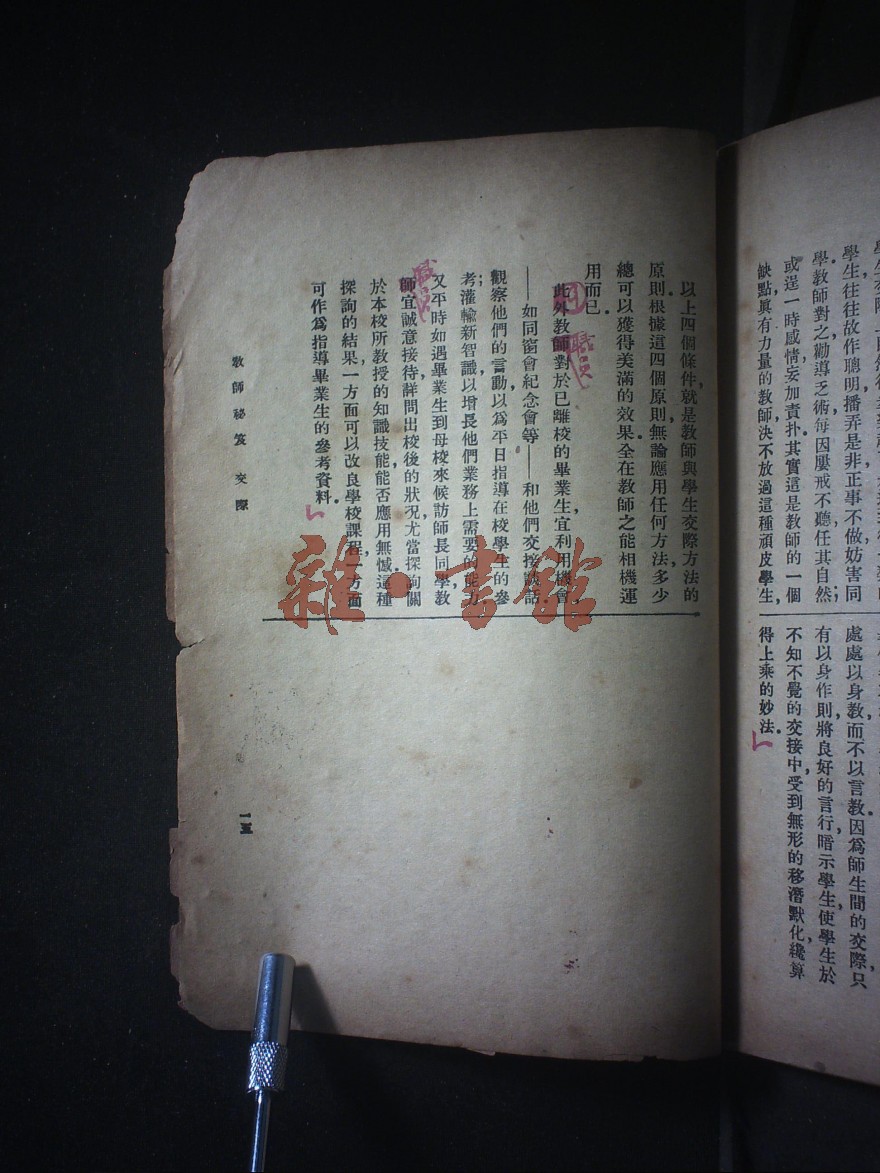 學生往往故作聰明播弄是非正事不做妨害同
學教師對之勸導乏術每因屢戒不聽任其自然;
或逞一時感情妄加責扑其實這是教師的一個
缺點具有力量的教師決不放過這種頑皮學生,
處處以身教而不以言教因爲師生間的交際只
有以身作則將良好的言行暗示學生使學生於
不知不覺的交接中受到無形的移潛默化纔算
得上乘的妙法。
以上四個條件就是教師與學生交際方法的
原則根據這四個原則無論應用任何方法多少
總可以獲得美滿的效果全在教師之能相機運
用而已。
此外教師對於已離校的畢業生宜利用機會
——如同窗會紀念會等——和他們交接談話
觀察他們的言動以爲平日指導在校學生的參
考;灌輸新智識以增長他們業務上需要的能力
又平時如遇畢業生到母校來候訪師長同學教
師宜誠意接待詳問出校後的狀況尤當探詢關
於本校所教授的知識技能能否應用無憾這種
探詢的結果一方面可以改良學校課程一方面
可作爲指導畢業生的參考資料。
教師秘笈 交際
一五
雜·書館